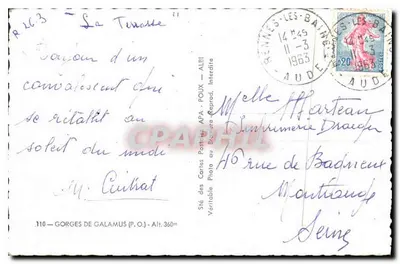 "La Terrasse"
d'un
convalescent qui
se rétablit au
soleil du midi
110 — GORGES DE GALAMUS (P. O.) - Alt. 360m
Sté des Cartes Postales APA - POUX - ALBI
Véritable Photo au Reprod. Interdite
RENNES-LES-BAINS
14 H45
11-3
1963
AUDE
14 H45
1963
AUDE
0,20
Melle Marteau
46 rue de
Montrouge
Seine